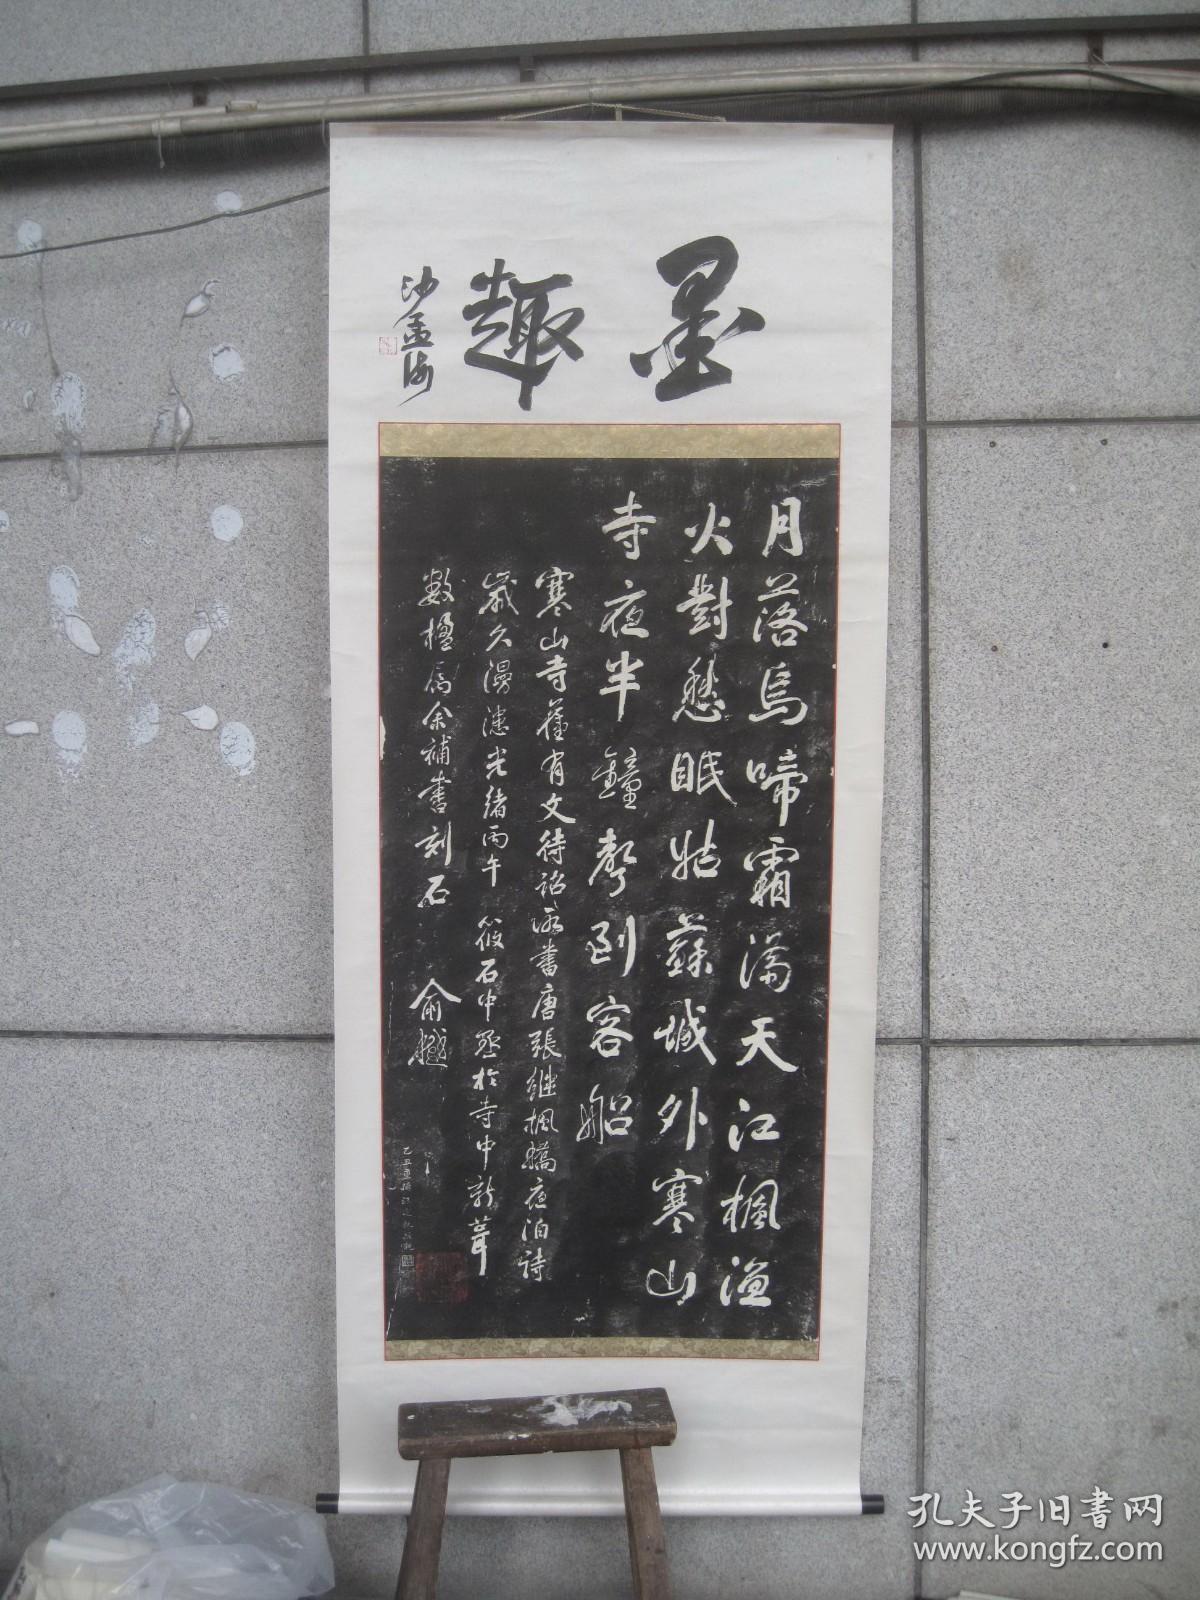 墨趣
沙孟海
月落烏啼霜滿天江楓漁
火對愁眠姑蘇城外寒山
寺夜半鐘聲到客船
寒山寺舊有文待詔所書唐張繼楓橋夜泊詩
歲久漫漶光緒丙午筱石中丞於寺中新葺
數楹屬余補書刻石
俞樾
孔夫子旧书网
www.kongfz.com